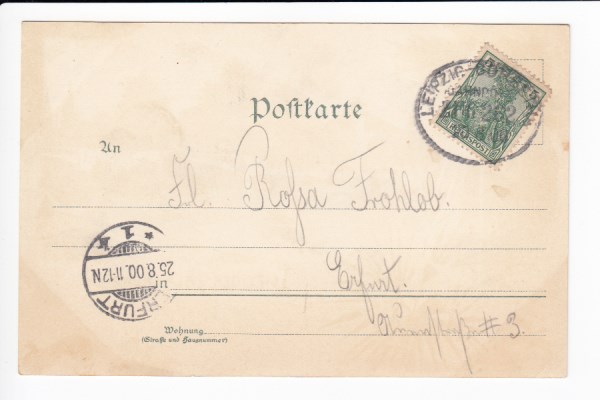 Postkarte
LEIPZIG
REICHSPOST
An
Fl. Rosa Frohlob.
Erfurt.
3.
* 1 k
25.8.00.11-12N
ERFURT
in
Wohnung
(Straße und Hausnummer)